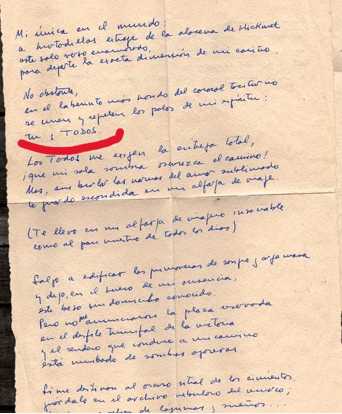 Mi única en el mundo:
a hurtadillas extraje de la alacena de Hickmet
este solo verso enamorado,
para dejarte la exacta dimensión de mi cariño.
No obstante,
en el laberinto más hondo del corazón taciturno
se unen y repelen los polos de mi espíritu:
tú y TODOS.
Los TODOS me exigen la entrega total,
¡que ni sola sombra oscurezca el camino!
Mas, sin burlar las normas del amor sublimado
te guardo escondida en mi alforja de viaje.
(Te llevo en mi alforja de viajero insaciable
como al pan nuestro de todos los días)
Salgo a edificar las primaveras de sangre y argamasa
y dejo, en el hueco de mi ausencia,
este beso sin domicilio conocido.
Pero no me anunciaron la plaza reservada
en el desfile triunfal de la victoria
y el sendero que conduce a mi camino
está nimbado de sombras agoreras.
Si me destinan al oscuro sitial de los cimientos,
guárdalo en el archivo nebuloso del recuerdo;
de lágrimas y sueños...